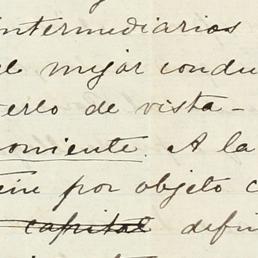 intermediarios
el mejor condu
verlo de vista-
oniente. A la
Tene por objeto c
capital defin